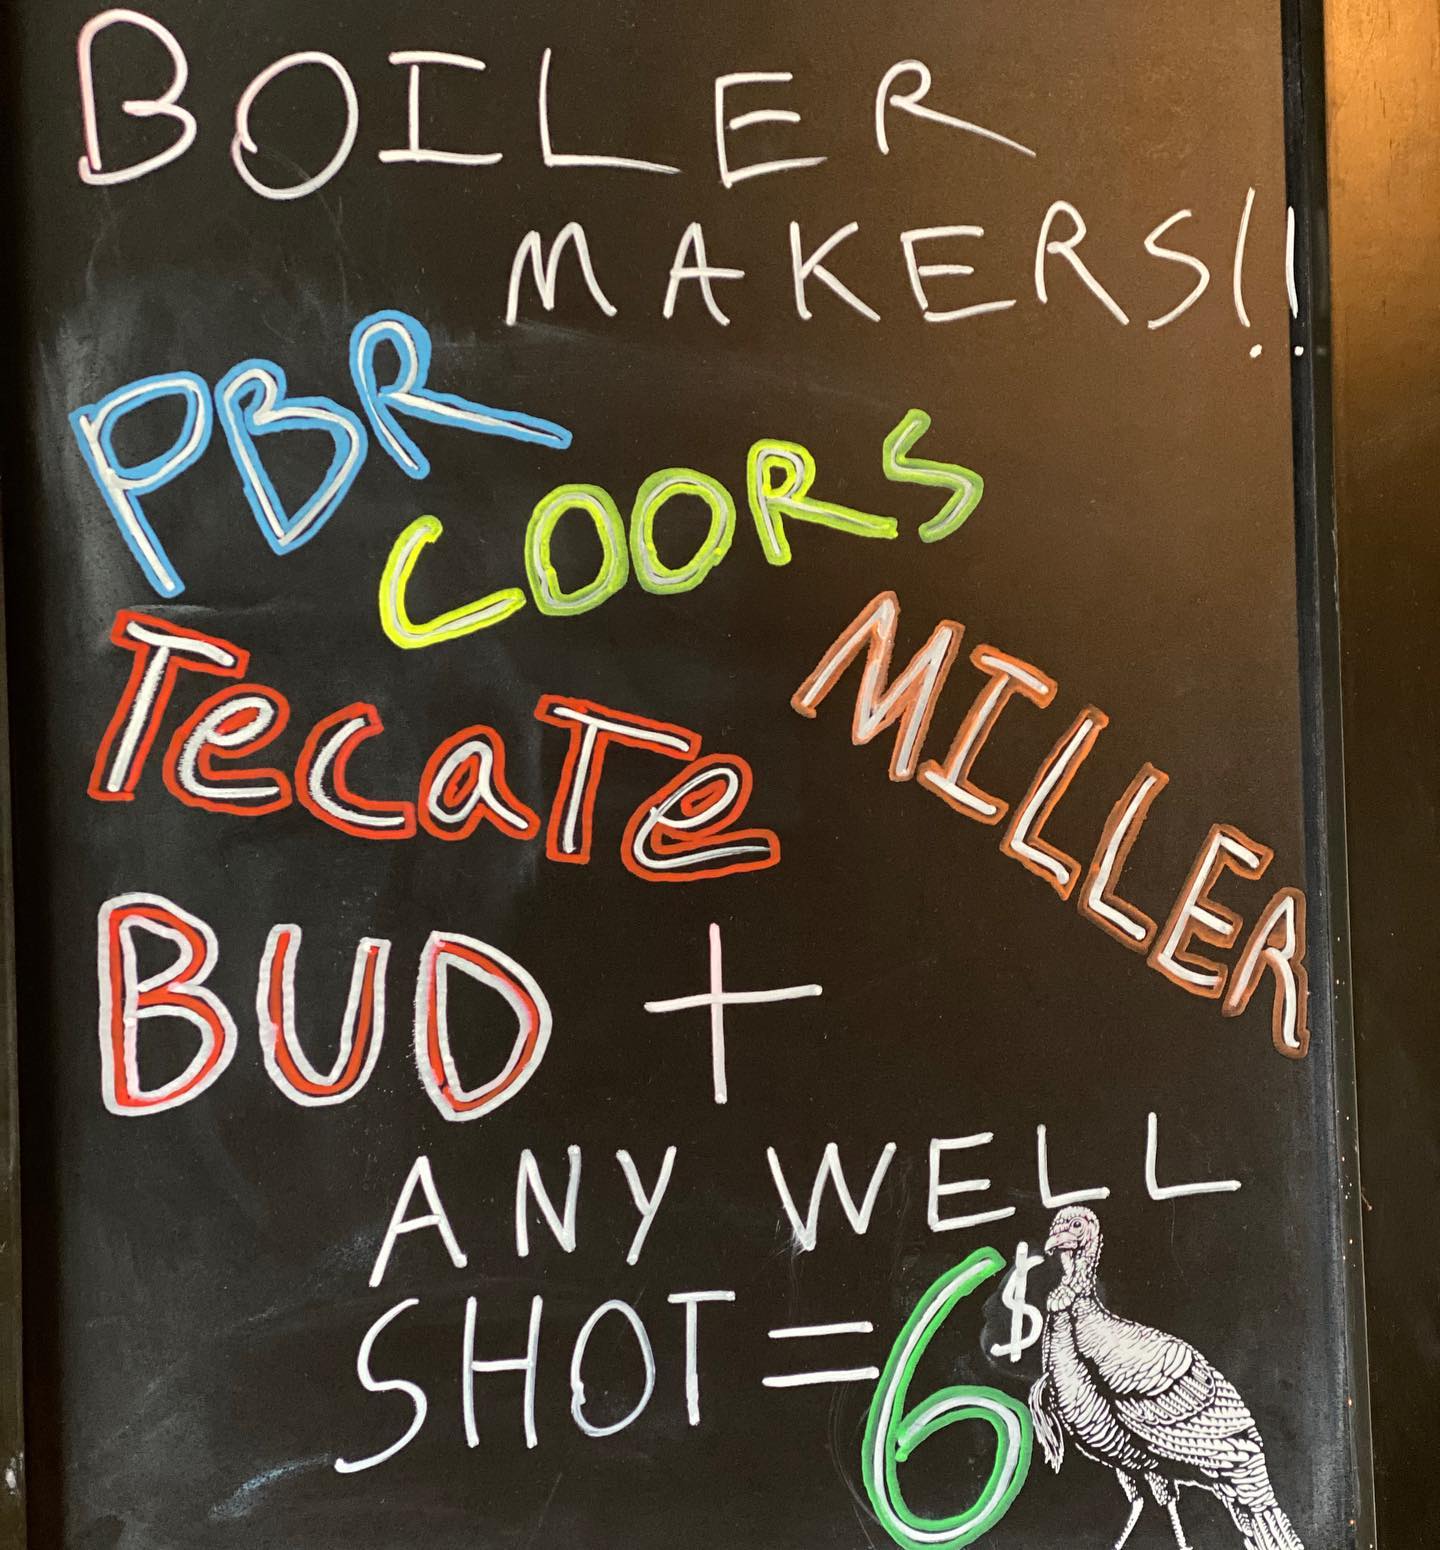 BOILER
MAKERS!!
PBR
COORS
TecaTe
MILLER
BUD +
ANY WELL
SHOT = 6$